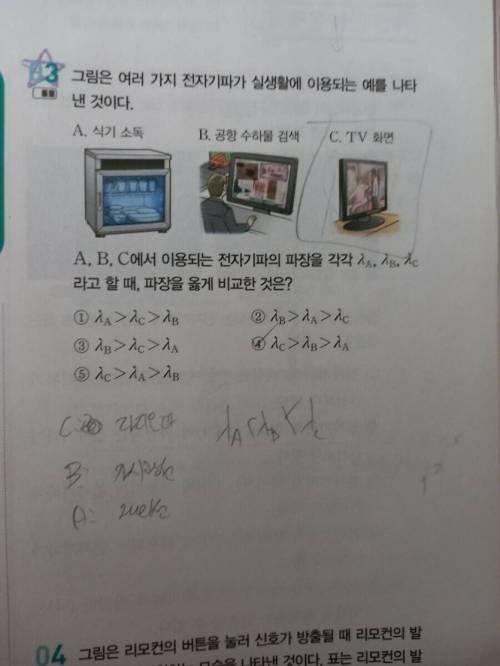 03 그림은 여러 가지 전자기파가 실생활에 이용되는 예를 나타
낸 것이다.
A. 식기 소독 B. 공항 수하물 검색 C. TV 화면
A, B, C에서 이용되는 전자기파의 파장을 각각 λA, λB, λC
라고 할 때, 파장을 옳게 비교한 것은?
① λA>λC>λB ② λB>λA>λC
③ λB>λC>λA ④ λC>λB>λA
⑤ λC>λA>λB
C: 라디오파 λA<λB<λC
B:
A:
04 그림은 리모컨의 버튼을 눌러 신호가 방출될 때 리모컨의 발
모습을 나타낸 것이다. 표는 리모컨의 발